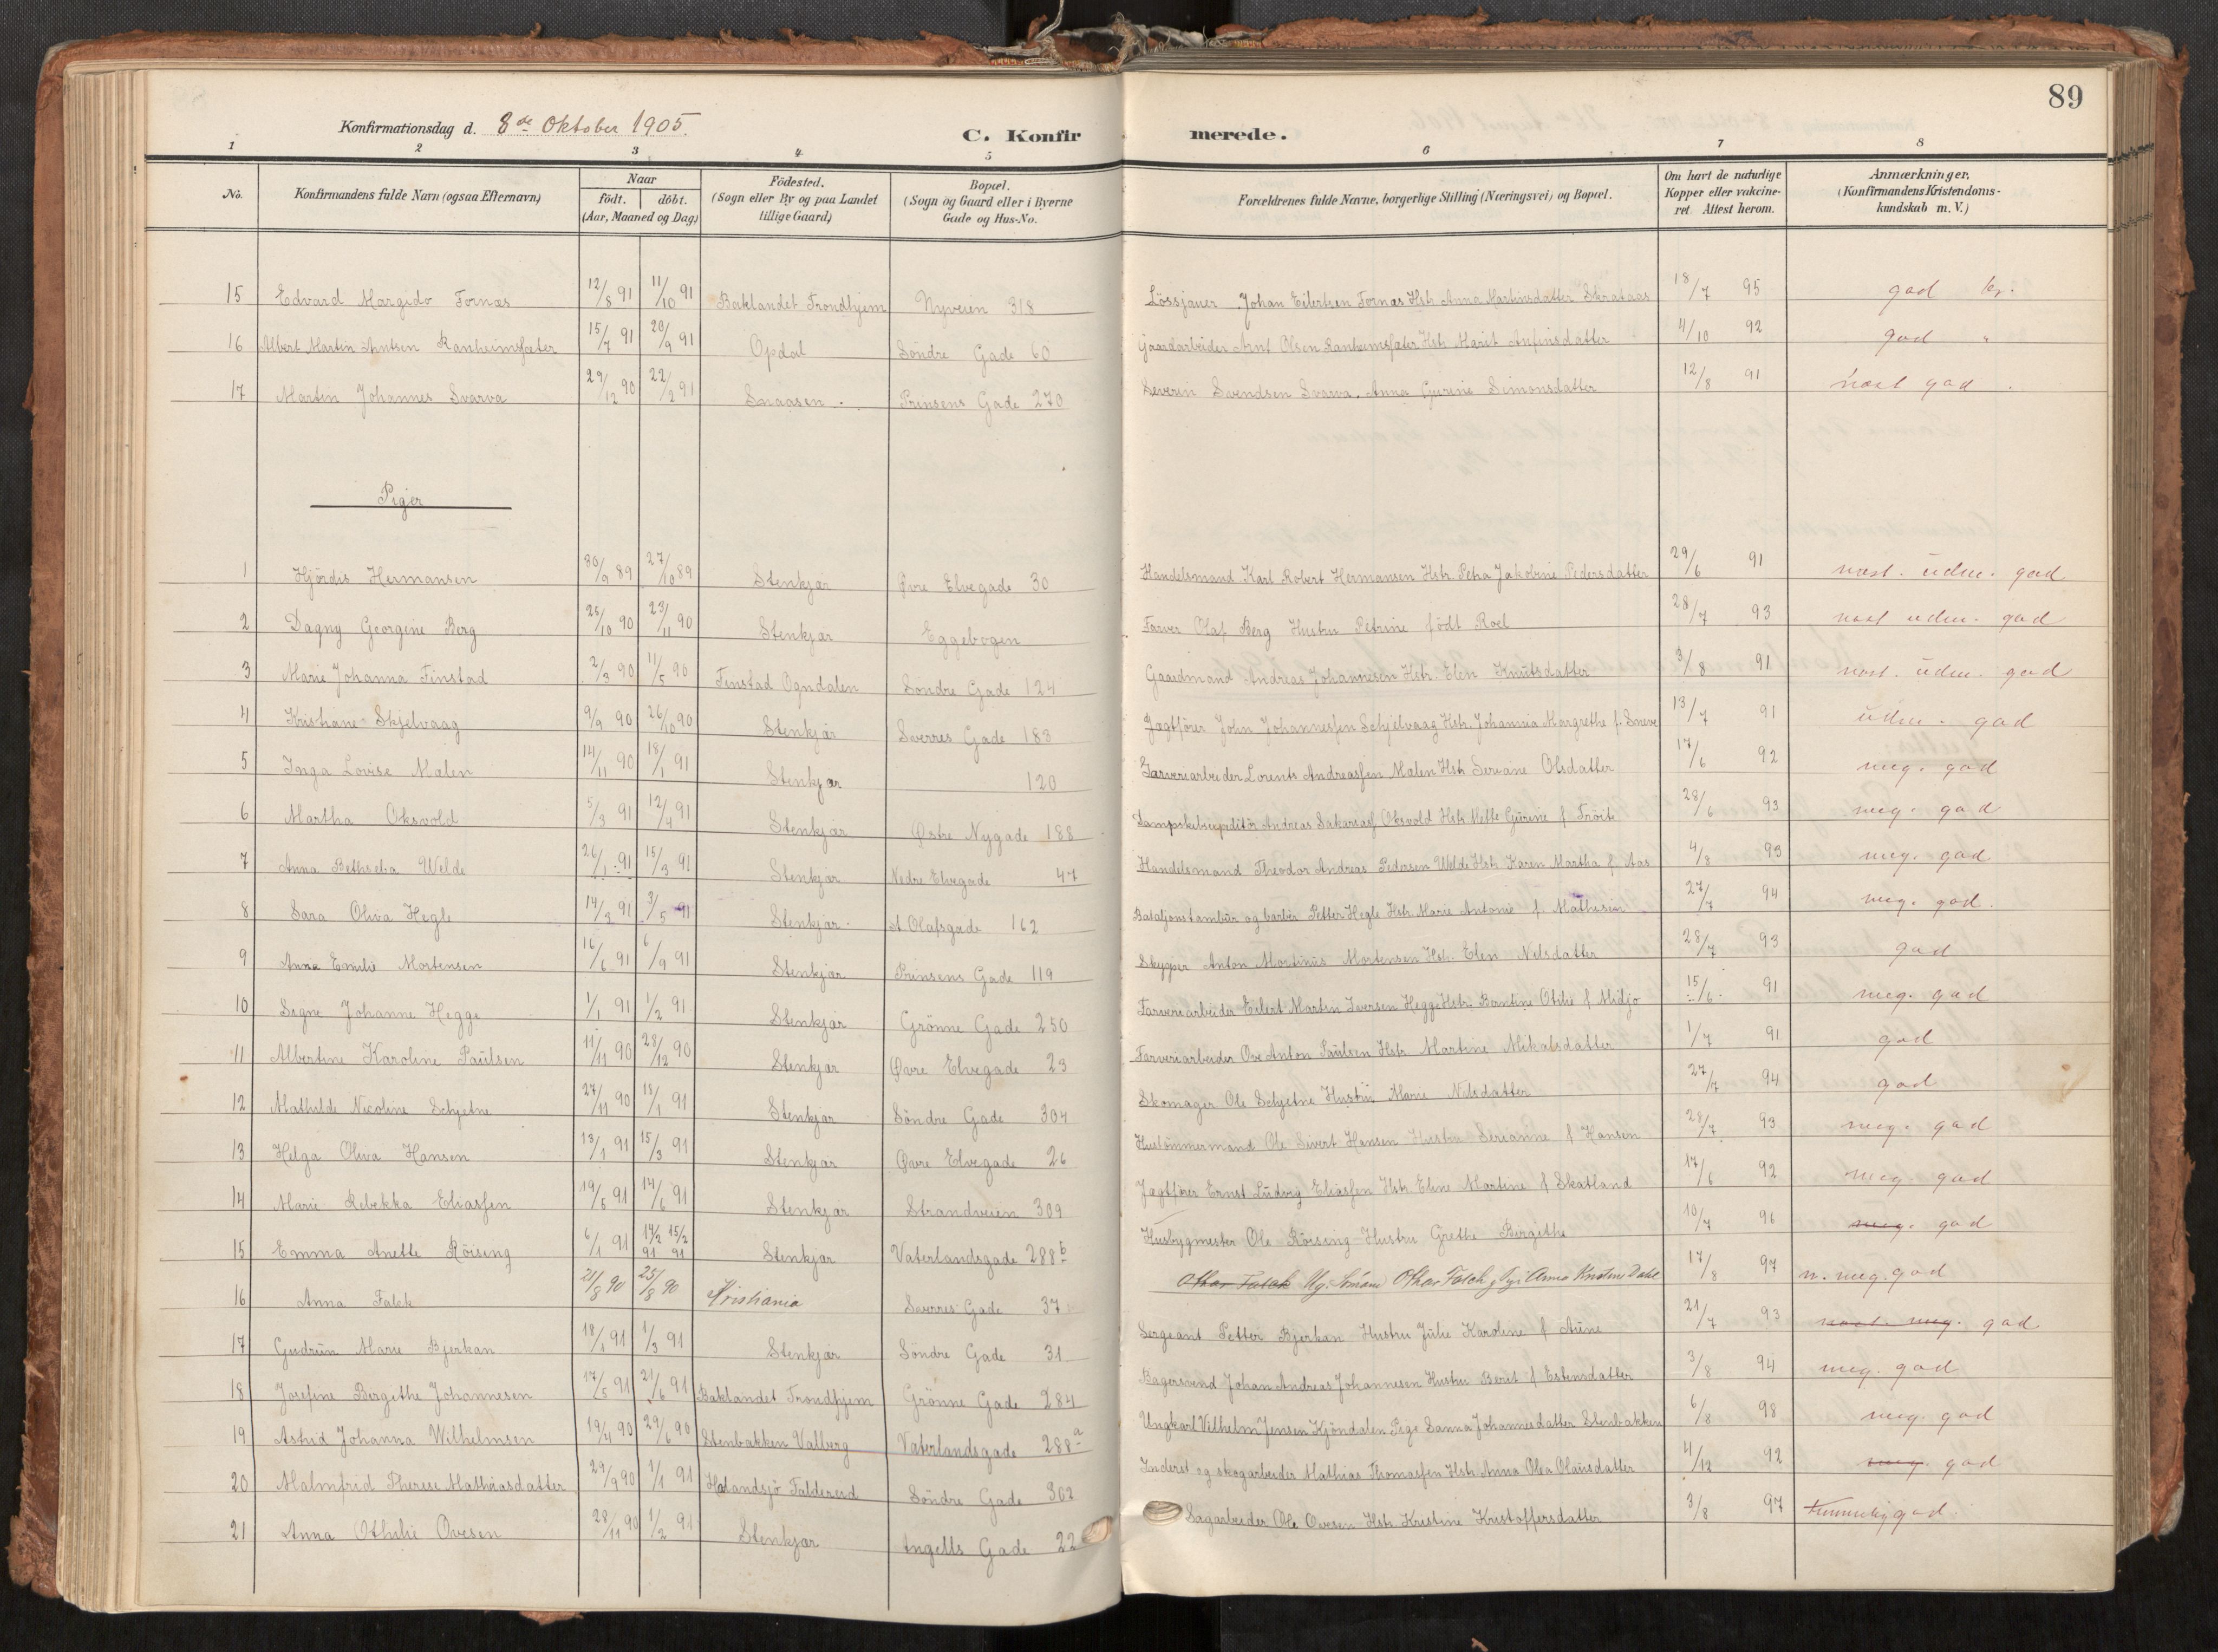 89
Konfirmationsdag d. 8de Oktober 1905.
C. Konfirmerede.
1 2 3 4 5 6 7 8
No. Konfirmandens fulde Navn (ogsaa Efternavn) Naar födt. döbt. (Aar, Maaned og Dag) Födested. (Sogn eller By og paa Landet tillige Gaard) Bopæl. (Sogn og Gaard eller i Byerne Gade og Hus-No. Forældrenes fulde Navne, borgerlige Stilling (Næringsvei) og Bopæl. Om havt de naturlige Kopper eller vakcineret. Attest herom. Anmærkninger. (Konfirmandens Kristendomskundskab m. V.)
15 Edvard Margido Fornæs 12/8 91 11/10 91 Baklandet Trondhjem Nyveien 318 Lössjauer Johan Eilertsen Fornæs Hstr Anna Martinsdatter 18/7 95 god
16 Albert Martin Arntsen Ranheimsæter 15/7 91 20/9 91 Opdal Söndre Gade 60 Gaardarbeider Arnt Olsen Ranheimsæter Hstr Marit Anfinsdatter 4/10 92 god "
17 Martin Johannes Svarva 29/12 90 22/2 91 Snaasen. Prinsens Gade 270 Severin Svendsen Svarva. Anna Gurine Simonsdatter 12/8 91 næst god
Piger
1 Hjördis Hermansen 30/9 89 27/10 89 Stenkjær Øvre Elvegade 30 Handelsmand Karl Robert Hermansen Hstr Petra Jakobine Pedersdatter 29/6 91 næst. udm. god
2 Dagny Georgine Berg 25/10 90 23/11 90 Stenkjær Eggebogen Farver Olaf Berg Hustru Petrine födt Roel 28/7 93 næst udm. god
3 Marie Johanna Finstad 2/3 90 11/5 90 Finstad Ogndalen Söndre Gade 124 Gaardmand Andreas Johannesen Hstr. Elen Knutsdatter 3/8 91 næst. udm. god
4 Kristiane Skjelvaag 9/9 90 26/10 90 Stenkjær Sverres Gade 183 Jagtförer John Johannessen Schjelvaag Hstr. Johannia Margrethe f. Sneve 13/7 91 udm. god
5 Inga Lovise Malen 14/11 90 18/1 91 Stenkjær 120 Garveriarbeider Lorents Andreassen Malen Hstr Seriane Olsdatter 17/6 92 meg. god
6 Martha Oksvold 5/3 91 12/4 91 Stenkjær Østre Nygade 188 Dampskibsexpeditör Andreas Oksvold Hstr Mette Gurine f Tröite 28/6 93 meg. god
7 Anna Bethselia Welde 26/1 91 15/3 91 Stenkjær Nedre Elvegade 47 Handelsmand Theodor Andreas Pedersen Welde Hstr Karen Martha f. Aas 4/8 93 meg. god
8 Sara Oliva Hegle 14/3 91 3/5 91 Stenkjær. St Olafsgade 162 Bataljonstambur og barber Petter Hegle Hstr. Marie Antonie f Mathesin 27/7 94 meg. god.
9 Anna Emilie Mortensen 16/6 91 6/9 91 Stenkjær Prinsens Gade 119 Skypper Anton Martinus Mortensen Hstr. Elen Nilsdatter 28/7 93 god
10 Signe Johanne Hegge 1/1 91 1/2 91 Stenkjær Grönne Gade 250 Farveriarbeider Eilert Martin Iversen Hegge Hstr. Berntine Otilie f Midjo 15/6 91 meg. god
11 Albertine Karoline Paulsen 11/11 90 28/12 90 Stenkjær Øvre Elvegade 23 Farveriarbeider Ove Anton Paulsen Hstr Martine Mikalsdatter 1/7 91 god
12 Mathilde Nicoline Schjetne 27/11 90 18/1 91 Stenkjær Söndre Gade 304 Skomager Ole Schjetne Hustru Marie Nilsdatter 27/7 94 god
13 Helga Oliva Hansen 13/1 91 15/3 91 Stenkjær Øvre Elvegade 26 Hustömmermand Ole Sivert Hansen Hustru Serianne f Hansen 28/7 93 meg. god
14 Marie Rebekka Eliassen 19/5 91 14/6 91 Stenkjær Strandveien 309 Jagtförer Ernst Ludvig Eliassen Hstr. Eline Martine f Skatland 17/6 92 meg. god
15 Emma Anette Röising 6/1 91 14/2 91 15/2 91 Stenkjær Vaterlandsgade 288b Husbygmester Ole Röising Hustru Grethe Birgithe 10/7 96 meg. god
16 Anna Falck 21/8 90 25/8 90 Kristiania Sverres Gade 37 Othar Falck Ug. Sömand Othar Falck, Pige Anna Kristine Dahl 17/8 97 n. meg. god
17 Gudrun Marie Bjerkan 18/1 91 1/3 91 Stenkjær Söndre Gade 31 Sergeant Petter Bjerkan Hustru Julie Karoline f Aune 21/7 93 næst. meg. god
18 Josefine Bergithe Johannesen 17/5 91 21/6 91 Baklandet Trondhjem Grönne Gade 284 Bagersvend Johan Andreas Johannesen Hustru Berit f Estensdatter 3/8 94 meg. god
19 Astrid Johanna Wilhelmsen 19/4 90 29/6 90 Stenbakken Valberg Vaterlandsgade 288a Ungkarl Vilhelm Jensen Kjöndalen Pige Sanna Johannesdatter Stenbakken 6/8 98 meg. god
20 Malmfrid Therese Mathiasdatter 29/9 90 1/1 91 Halandsjö Faldereid Söndre Gade 302 Inderst og skogarbeider Mathias Thomassen Hstr Anna Olea Olausdatter 4/12 92 meg. god
21 Anna Othilie Ovesen 28/11 90 1/2 91 Stenkjær Angells Gade 22 Sagarbeider Ole Ovesen Hstr. Kristine Kristoffersdatter 3/8 97 temmelig god